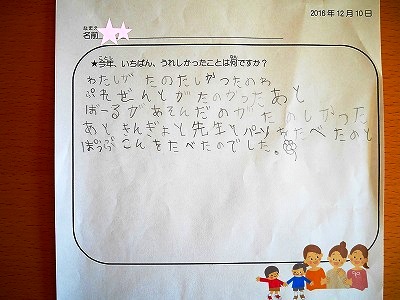 2016年12月10日
なまえ
名前
★今年、いちばん、うれしかったことは何ですか？
わたしが たのたしかつたのわ
ぷれぜんとが たのかった あと
ぱーるが あそんだのが たのしかった
あと きんぎょと 先生と パーソ をたべたのと
ぽっぷ こんをたべたのでした。